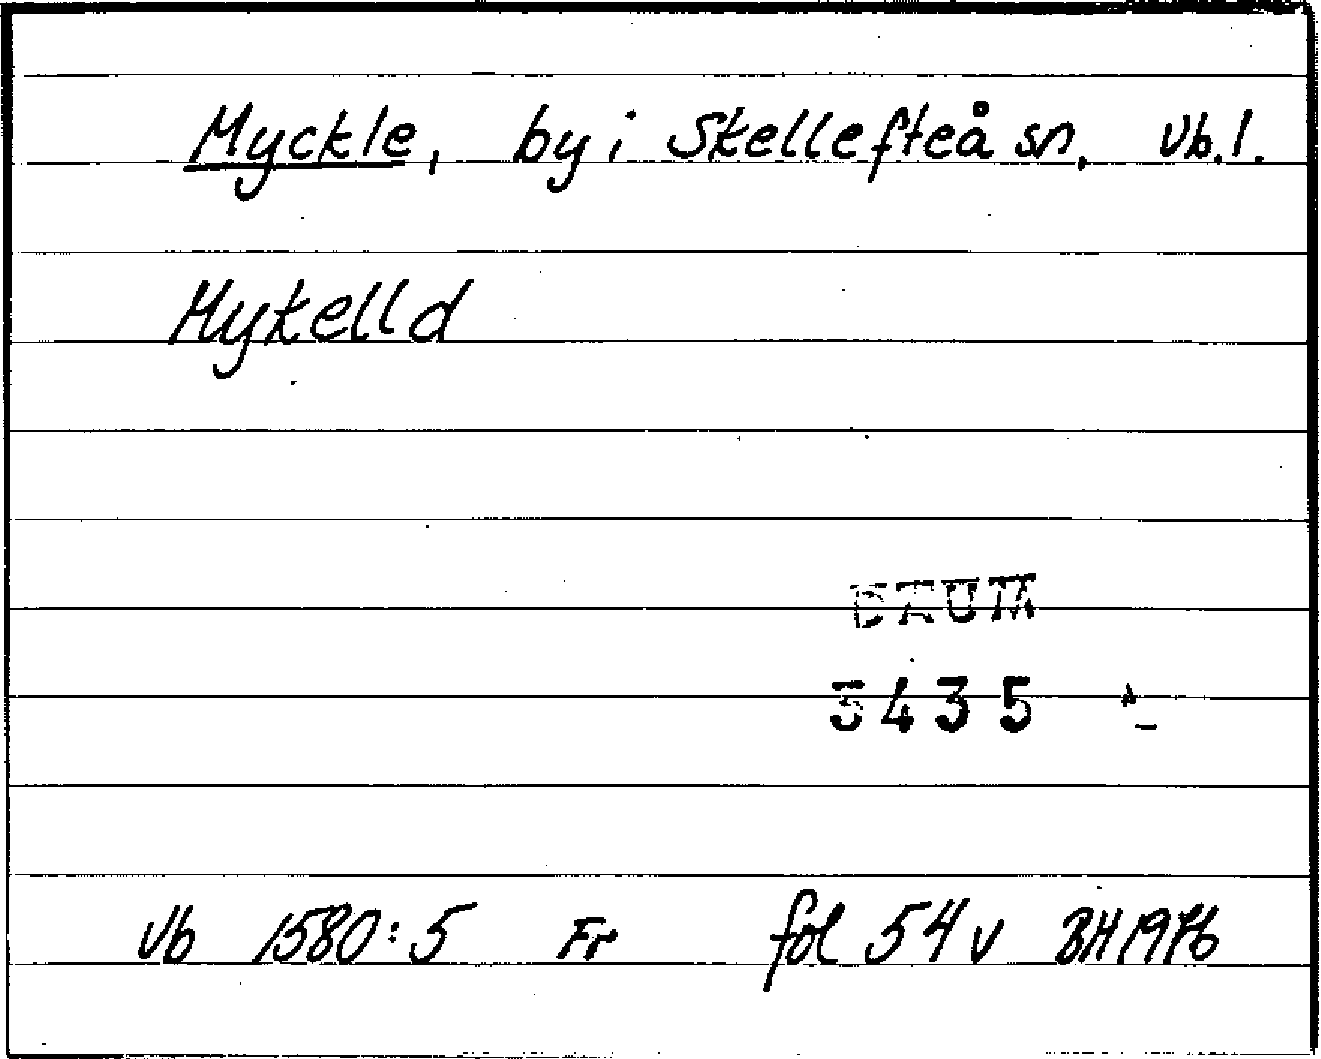 Myckle, by i Skellefteå sn. Vb.l.
Mykelld
DAUM
5435
Vb 1580:5 Fr fol 54 v BH 1976